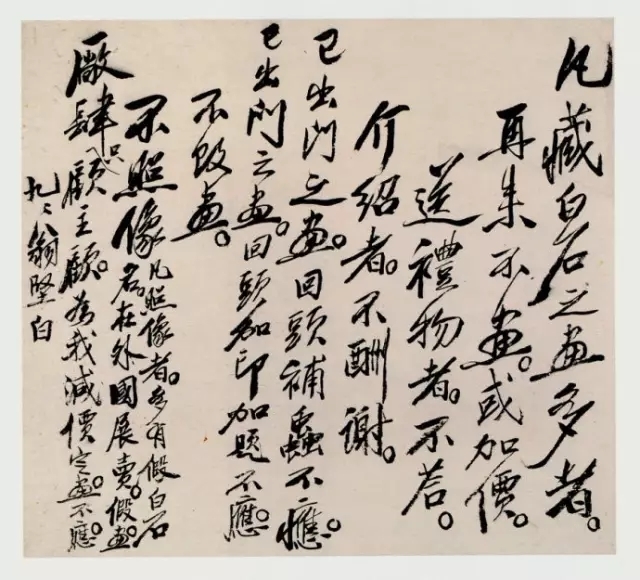 凡藏白石之畫多者。
再來不畫。或加價。
送禮物者。不荅。
介紹者。不酬謝。
已出門之畫。回頭補蟲不應。
已出門之畫。回頭加印加題不應。
不改畫。
不照像。凡照像者。多有假白石
名。在外國展賣。假畫。
厰肆只顧主顧。為我減價定畫。不應。
九〻翁堅白